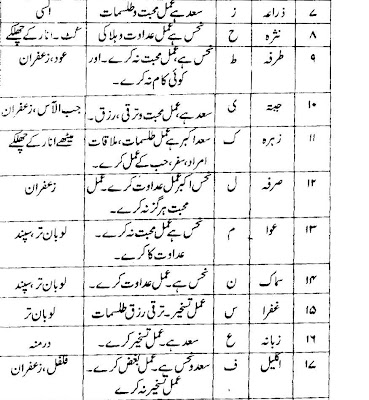 ۷ ذراعہ ز سعد ہے عمل محبت و طلسمات اسی
۸ نثرہ ح نحس ہے عمل عداوت و ہلاکی کٹ۔ انار کے چھلکے
۹ طرفہ ط نحس ہے، عمل محبت نہ کرے۔ اور عود، زعفران
کوئی کام نہ کرے۔
۱۰ جبتہ ی سعد ہے، عمل محبت و ترقی، رزق۔ حب الآس، زعفران
۱۱ زہرہ ک سعد اکبر ہے عمل طلسمات، ملاقات میٹھے انار کے چھلکے
امراد، سفر، حب کے عمل کرے۔
۱۲ صرفہ ل نحس اکبر عمل عداوت کرے۔ عمل زعفران
محبت ہرگز نہ کرے۔
۱۳ عوا م نحس ہے عمل محبت نہ کرے۔ لوبان تر، سپند
عداوت کا کرے۔
۱۴ سماک ن نحس ہے۔ عمل عداوت کرے۔ لوبان تر، سپند
۱۵ غفرا س عمل تسخیر۔ ترقی رزق طلسمات لوبان تر
۱۶ زبانہ ع سعد ہے۔ عمل تسخیر کرے۔ درمنہ
۱۷ اکلیل ف سعد و نحس ہے۔ عمل بغض کرے۔ فلفل، زعفران
عمل تسخیر نہ کرے